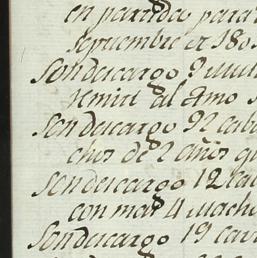 en partida para
Septiembre de 180
Son descargo 9 Mul
remiti al Amo
Son descargo 92 cab
chos de 2 años q
Son descargo 12 ca
con mas 4 Mach
Son descargo 19 ca